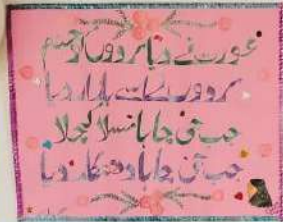 عورت نے جنم دیا مردوں کو
مردوں نے اسے بازار دیا
جب جی چاہا مسلا کچلا
جب جی چاہا دھتکار دیا